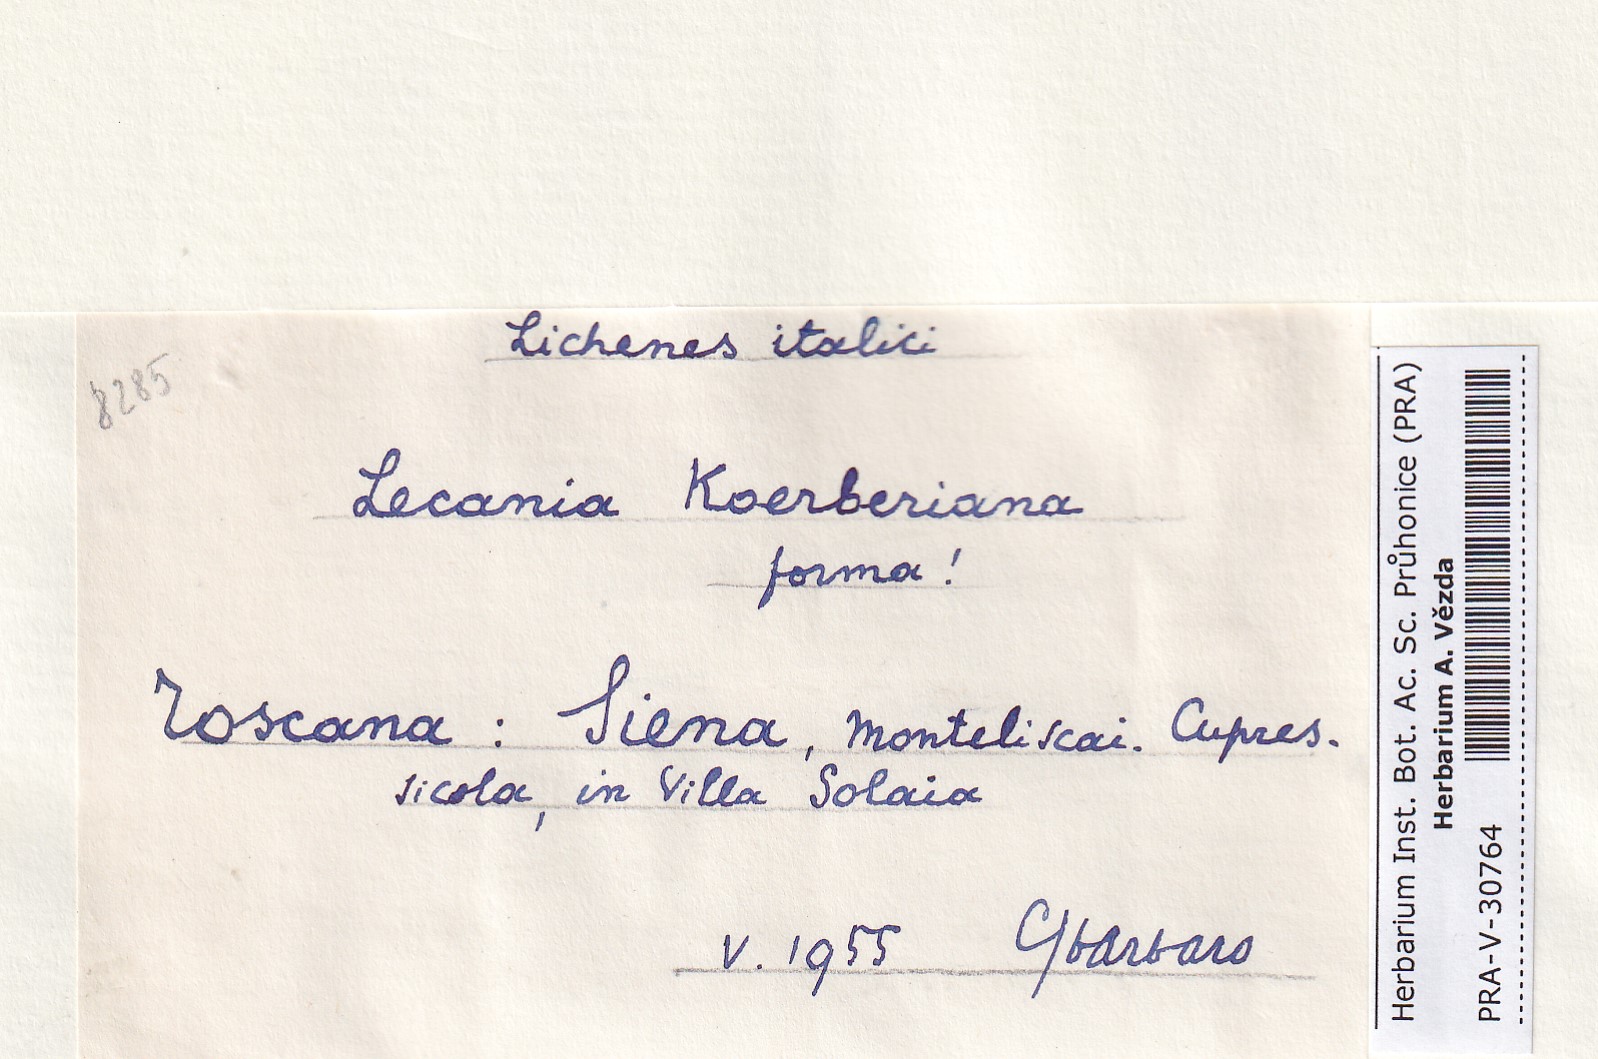 Lichenes italici
8285
Lecania Koerberiana
forma!
Toscana: Siena, Monteliscai. Cupres.
sicola, in Villa Solaia
V. 1955 Gbarbaro
Herbarium Inst. Bot. Ac. Sc. Průhonice (PRA)
Herbarium A. Vězda
PRA-V-30764